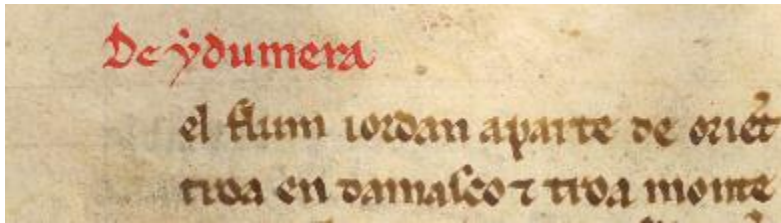 De ẏdumera
el flum iordan aparte de oriēt
troa en damasco ⁊ troa monte